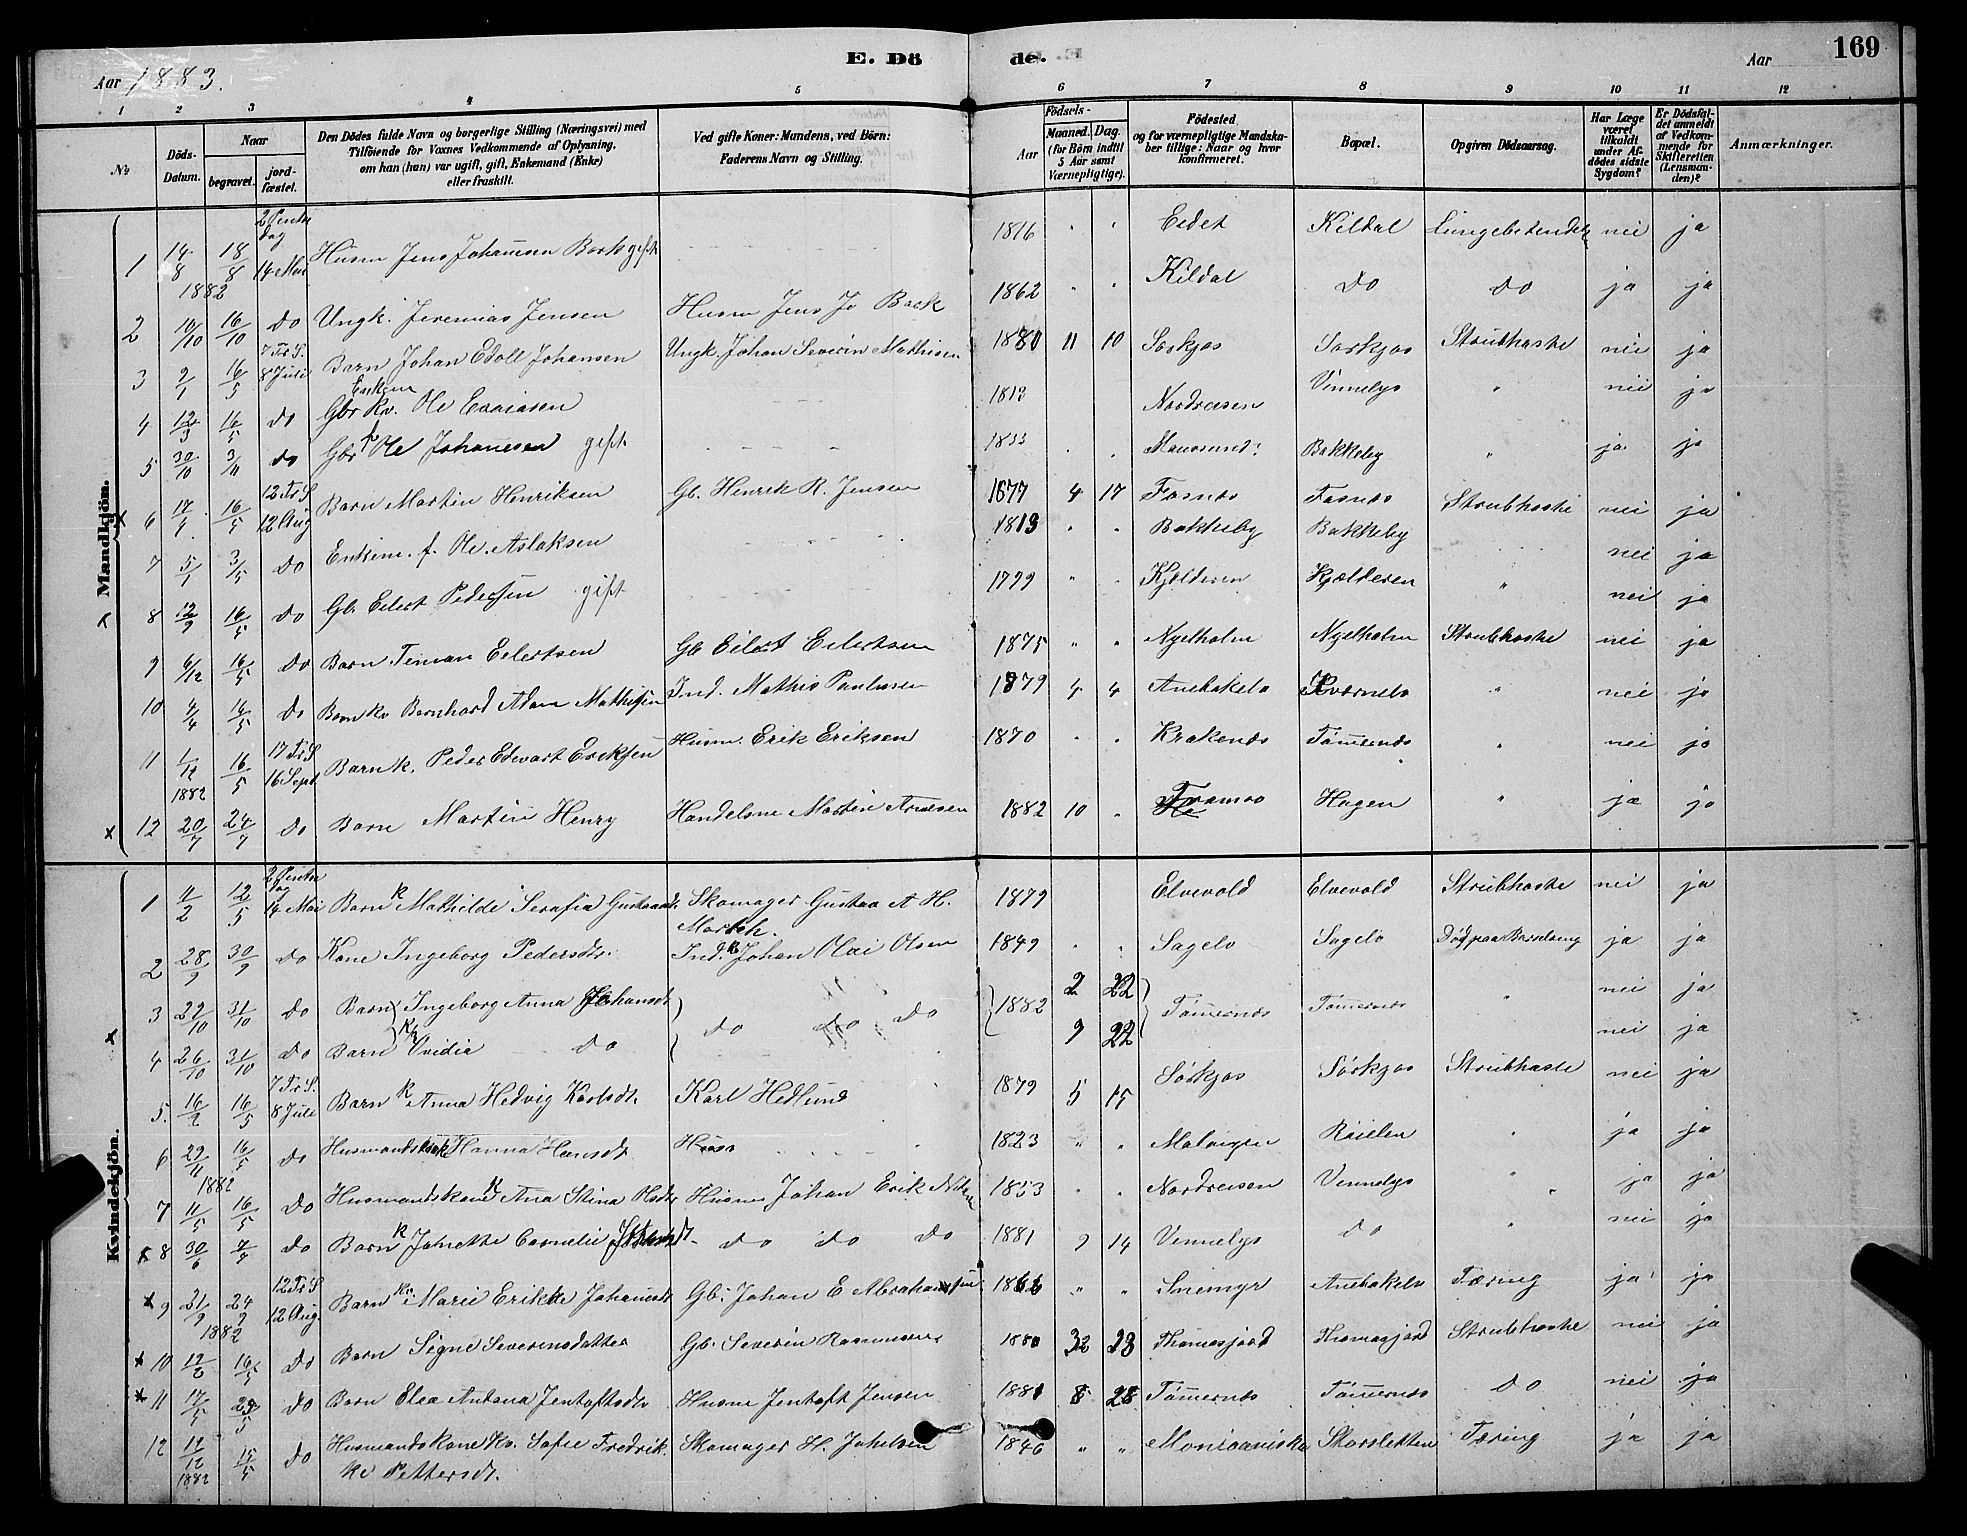 E. Dö de.
169
Aar 1883.
Aar
1 2 3 4 5 6 7 8 9 10 11 12
№
Döds-Datum.
Naar
begravet.
jord-fæstet.
Den Dödes fulde Navn og borgerlige Stilling (Næringsvei) med
Tilföiende for Voxnes Vedkommende af Oplysning.
om han (han) var ugift, gift, Enkemand (Enke)
eller fraskilt.
Ved gifte Koner: Mandens, ved Börn:
Faderens Navn og Stilling.
Födsels-
Aar
Maaned. Dag.
(for Börn indtil
5 Aar samt
Værnepligtige).
Födested
og for værnepligtige Mandska-
ber tillige: Naar og hvor
konfirmeret.
Bopæl.
Opgiven Dödsaarsag.
Har Læge
været
tilkaldt
under Af-
dödes sidste
Sygdom?
Er Dödsfal-
det anmeldt
af Vedkom-
mende for
Skifteretten
(Lensman-
den)?
Anmærkninger.
Mandkjön.
1 14/8 1882 18/8 14 Mai Husm Jens Johannesen Bark gift 1816 Eidet Kildal Lungebetendelse nei ja
2 10/10 16/10 do Ungk. Jeremias Jensen Husm Jens Jo Back 1862 Kildal do do ja ja
3 2/1 16/5 7 Tr S. 8 Juli Barn Johan Edoll Johansen Ungk. Johan Severin Mathisen 1880 11 10 Sørkjos Sørkjos Strubhoste nei ja
4 12/3 16/5 do Gbr Kv. Ole Esaiasen 1813 Nordreisen Vinnelys " nei ja
5 30/10 3/11 do Gbr Ole Johanesen gift 1833 Maursund Bakkeby " ja ja
x 6 17/4 16/5 12 Tr S 12 Aug Barn Martin Henriksen Gb. Henrik R. Jensen 1877 4 17 Fosnes Fosnes Strubhoste nei ja
7 5/1 3/5 do Enkem. f. Ole Aslaksen 1813 " " Bakkeby Bakkeby nei ja
8 12/9 16/5 do Gb. Eilert Pedersen gift 1799 " " Kjelderen Kjælderen " nei ja
9 6/12 16/5 do Barn Timan Eilertsen Gb Eilert Eilertsen 1875 " " Nyelholm Nyelholm Strubhoste nei ja
10 4/4 16/5 do Barn kv Bernhard Adam Mathisen Ind. Mathis Paulusen 1879 4 4 Anebakelv Kvænelv " nei ja
11 1/12 1882 16/5 17 Tr S 16 Sept Barn k. Peder Edvart Eriksen Husm. Erik Eriksen 1870 " Krakenes Tømernes " nei ja
x 12 20/7 24/7 do Barn Martin Henry Handelsm Martin Arnesen 1882 10 " Tromsø Hagen " ja ja
Kvindekjön.
1 11/2 12/5 14 Mai Barn k Mathilde Serafia Gustavsd. Skomager Gustav A H. 1879 Elvevold Elvevold Strubhoste nei ja
2 28/9 30/9 do Kone Ingeborg Pedersdtr. Ind. k Johan Olai Olsen 1849 " " Sagelv Sagelv Død paa Barselseng ja ja
3 22/10 31/10 do Barn Ingeborg Anna Johansdt do do do 1882 2 22 Tømernes Tømernes " nei ja
4 26/10 31/10 do Barn k Ovidia do 9 22 nei ja
5. 16/2 16/5 7 Tr S. 8 Juli Barn k Anna Hedvig Karlsdt. Karl Hedlund 1879 5 15 Sørkjos Sørkjos Strubhoste nei ja
6 29/11 1882 16/5 do Husmandskone Hanna Hansdt Husm 1823 " " Malvigen " ja ja
7 11/5 16/5 do Husmandskone k Ana Stina Husm Johan Erik 1853 " " Nordreisen Vinnelys " ja ja
x 8 30/6 7/7 do Barn k Johette Cornelie do do do 1881 9 14 Vinnelys do " nei ja
x 9 21/9 1882 24/9 12 Tr S 12 Aug. Barn kv. Marie Erikke Johansdt Gb. Johan E Abrahamsen " " Snemyr Anebakelv Tæring ja ja
x 10 12/2 16/5 do Barn Signe Severinsdatter Gb. Severin Rasmussen 1880 23 Thomasjord Thomasjord Strubhoste nei ja
x 11 17/5 do Barn Elea Antona Jentoftsdtr Husm Jentoft Jensen 1881 8 28 Tømernes Tømernes do nei ja
12 12/12 1882 15/5 do Husmandskone kv. Sofie Fredrik- Skomager H. 1846 " " Storsletten Tæring ja ja
ke Pettersdt.